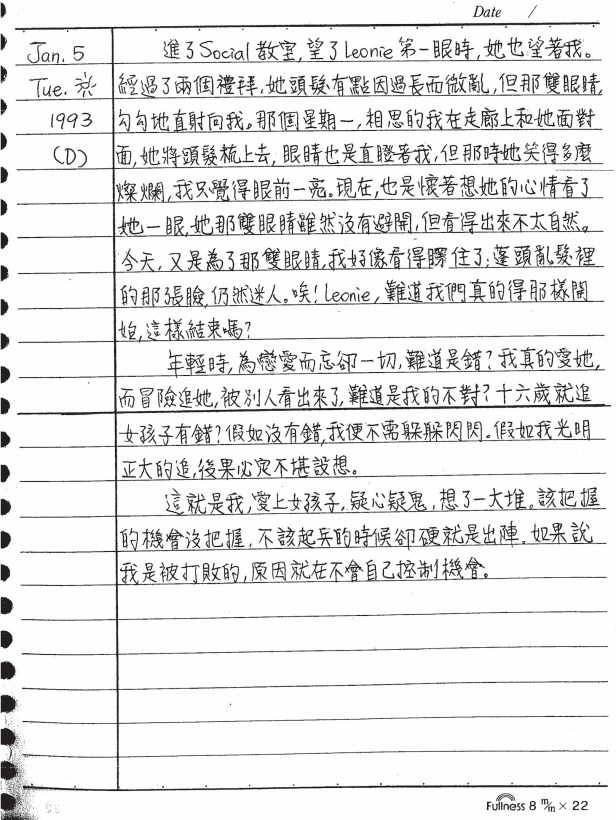 Date /
Jan. 5 進了Social教室,望了Leonie第一眼時,她也望著我。
Tue. 經過了兩個禮拜,她頭髮有點因過長而微亂,但那雙眼睛,
1993 勾勾地直射向我。那個星期一,相思的我在走廊上和她面對
(D) 面,她將頭髮梳上去,眼睛也是直瞪著我,但那時她笑得多麼
燦爛,我只覺得眼前一亮。現在,也是懷著想她的心情看了
她一眼,她那雙眼睛雖然沒有避開,但看得出來不太自然。
今天,又是為了那雙眼睛,我好像看得瞟住了;蓬頭亂髮裡
的那張臉,仍然迷人。唉!Leonie,難道我們真的得那樣開
始,這樣結束嗎?
年輕時,為戀愛而忘卻一切,難道是錯?我真的愛她,
而冒險追她,被別人看出來了,難道是我的不對?十六歲就追
女孩子有錯?假如沒有錯,我便不需躲躲閃閃。假如我光明
正大的追,後果必定不堪設想。
這就是我,愛上女孩子,疑心疑鬼,想了一大堆。該把握
的機會沒把握,不該起兵的時候卻硬就是出陣。如果說
我是被打敗的,原因就在不會自己控制機會。
Fullness 8 m/m × 22